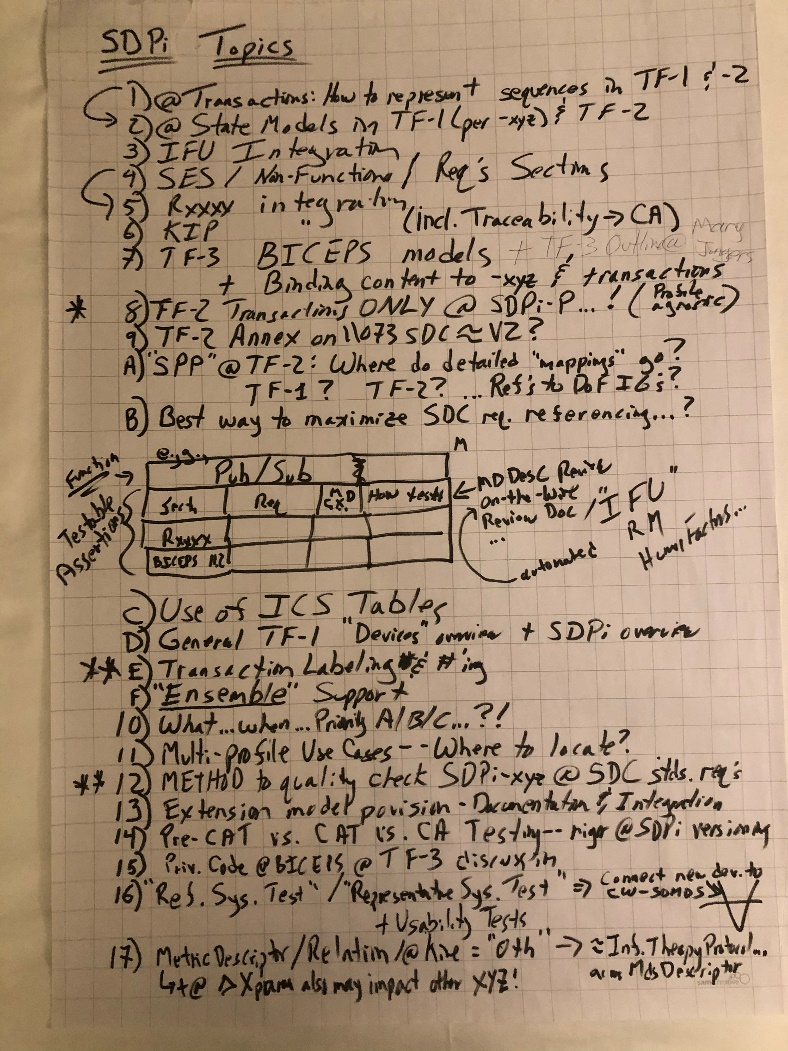 SDPi Topics
1) @ Transactions: How to represent sequences in TF-1 & -2
2) @ State Models in TF-1 (per -xyz) & TF-2
3) IFU Integration
4) SES / Non-Functional / Req's Sections
5) Rxxxx integration
6) KIP " (incl. Traceability → CA)
7) TF-3 BICEPS models + TF-3 Outline@
+ Binding content to -xyz & transactions
* 8) TF-2 Transactions ONLY @ SDPi-P...! (Profile agnostic)
9) TF-2 Annex on 11073 SDC ≈ V2?
A) "SPP" @ TF-2: Where do detailed "mappings" go?
TF-1? TF-2? ... Ref's to DoF IGs?
B) Best way to maximize SDC req. referencing...?
e.g.,
M
Function →
Pub/Sub
Testable Assertions
Sect. Req How tests
Rxxxx
BICEPS R2
← MDDesc Review
on-the-wire
Review Doc
...
automated
/ "IFU"
RM
Human Factors...
C) Use of ICS Tables
D) General TF-1 "Devices" overview + SDPi overview
** E) Transaction Labeling & #'ing
F) "Ensemble" Support
10) What...when...Priority A/B/C...?!
11) Multi-profile Use Cases -- Where to locate?
** 12) METHOD to quality check SDPi-xyz @ SDC stds. req's
13) Extension model povision - Documentation & Integration
14) Pre-CAT vs. CAT vs. CA Testing -- rigor @ SDPi versioning
15) Priv. Code @ BICEPS @ TF-3 discussion
16) "Ref. Sys. Test" / "Representative Sys. Test" ⇒ Connect new dev. to
+ Usability Tests
17) MetricDescriptor/Relation/@Kind = "Oth" → ≈ Inf. Therapy Protocol
as MdsDescriptor
↳ +@ Δ Xparam also may impact other XYZ!